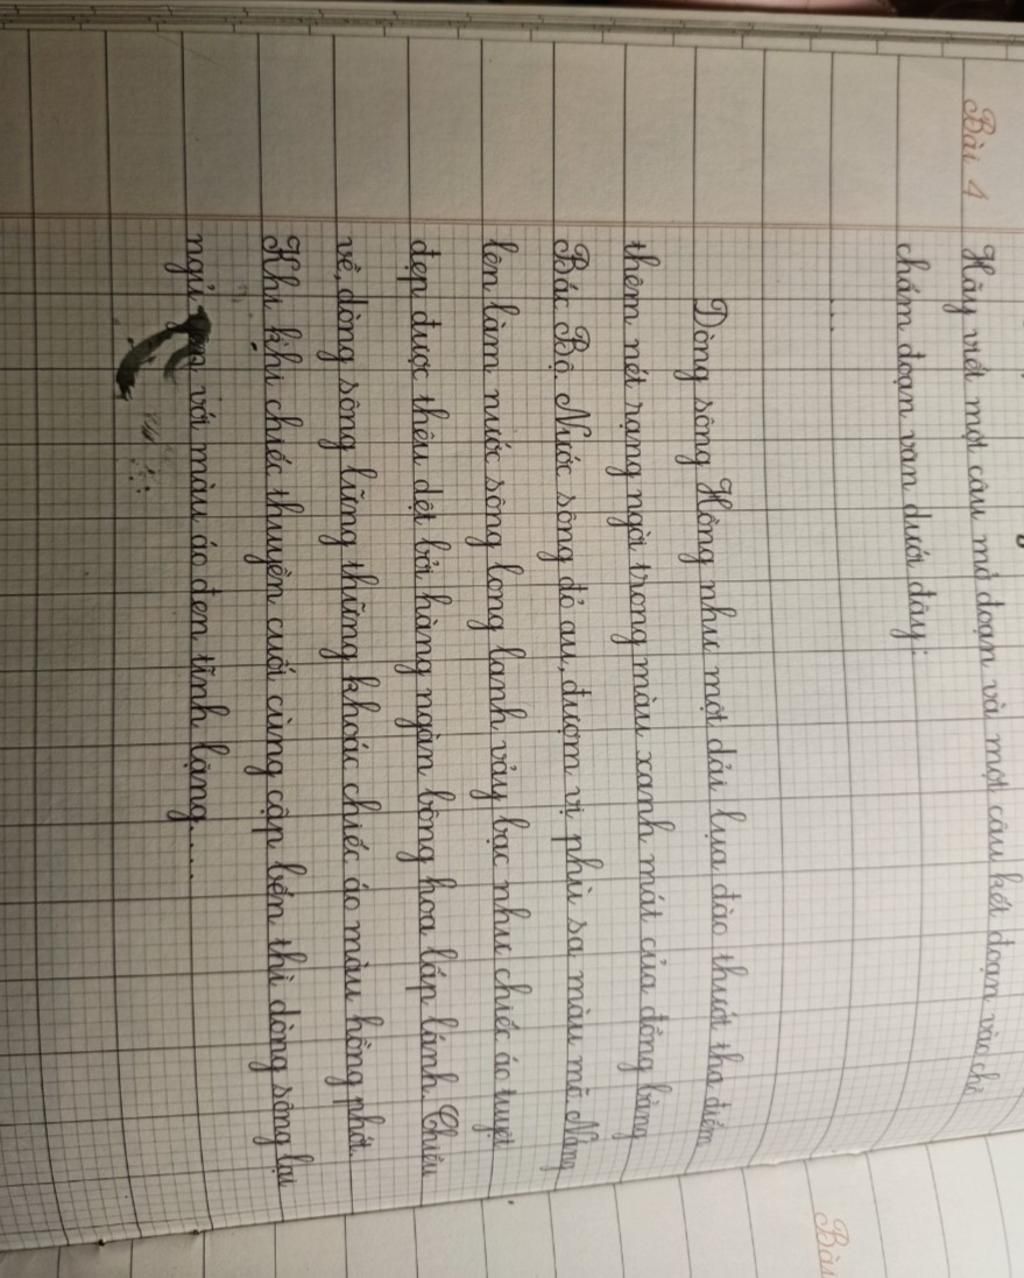 Bài 4 Hãy viết một câu mở đoạn và một câu kết đoạn vào chỗ
chấm đoạn văn dưới đây:
...
Dòng sông Hồng như một dải lụa đào thướt tha điểm
thêm nét rạng ngời trong màu xanh mát của đồng bằng
Bắc Bộ. Nước sông đỏ au, đượm vị phù sa màu mỡ. Nắng
lên làm nước sông long lanh vảy bạc như chiếc áo tuyệt
đẹp được thêu dệt bởi hàng ngàn bông hoa lấp lánh. Chiều
về, dòng sông lững thững khoác chiếc áo màu hồng phớt.
Khi khi chiếc thuyền cuối cùng cập bến thì dòng sông lại
ngủ yên với màu áo đen tĩnh lặng....
Bài